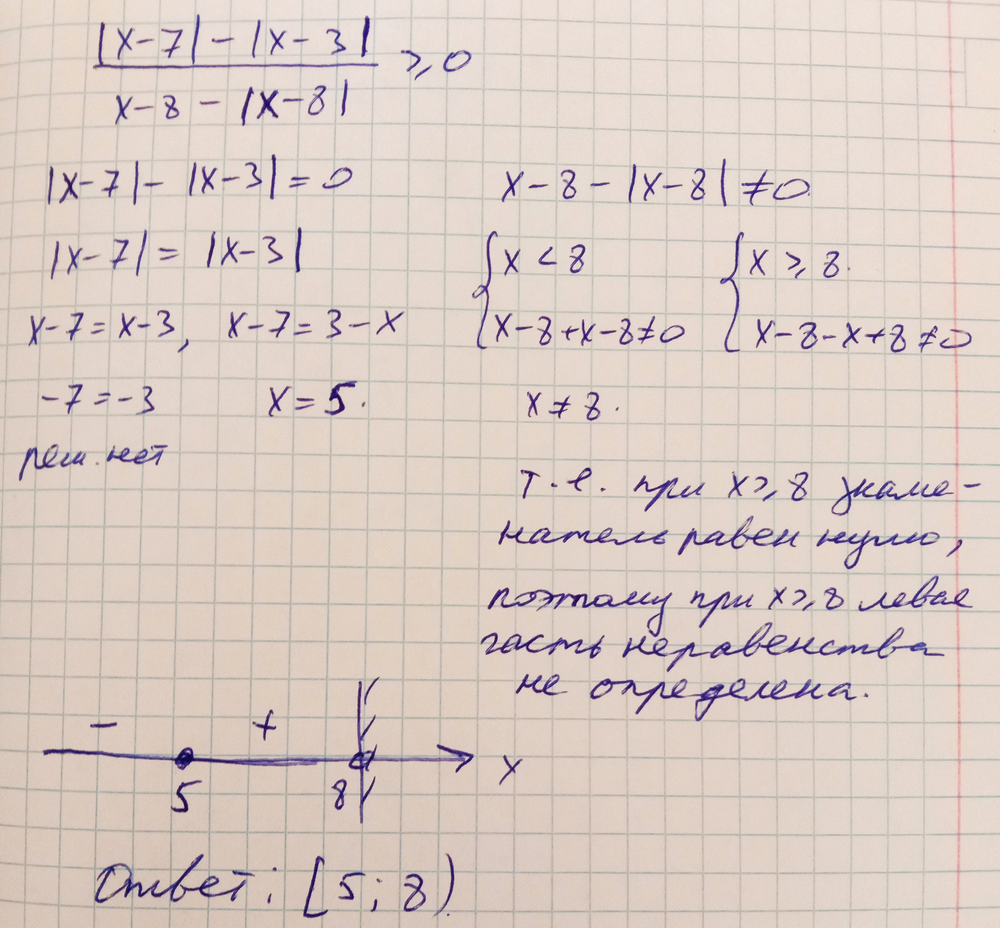 |x-7| - |x-3|
x-8 - |x-8|
≥ 0
|x-7| - |x-3| = 0
|x-7| = |x-3|
x-7=x-3, x-7=3-x
-7=-3 x=5.
реш. нет
x-8-|x-8| ≠0
{ x < 8 { x ≥ 8.
x-8+x-8≠0 x-8-x+8≠0
x≠8.
т.е. при x≥8 знаме-
натель равен нулю,
поэтому при x≥8 левая
часть неравенства
не определена.
- +
5 8 x
Ответ: [5; 8)